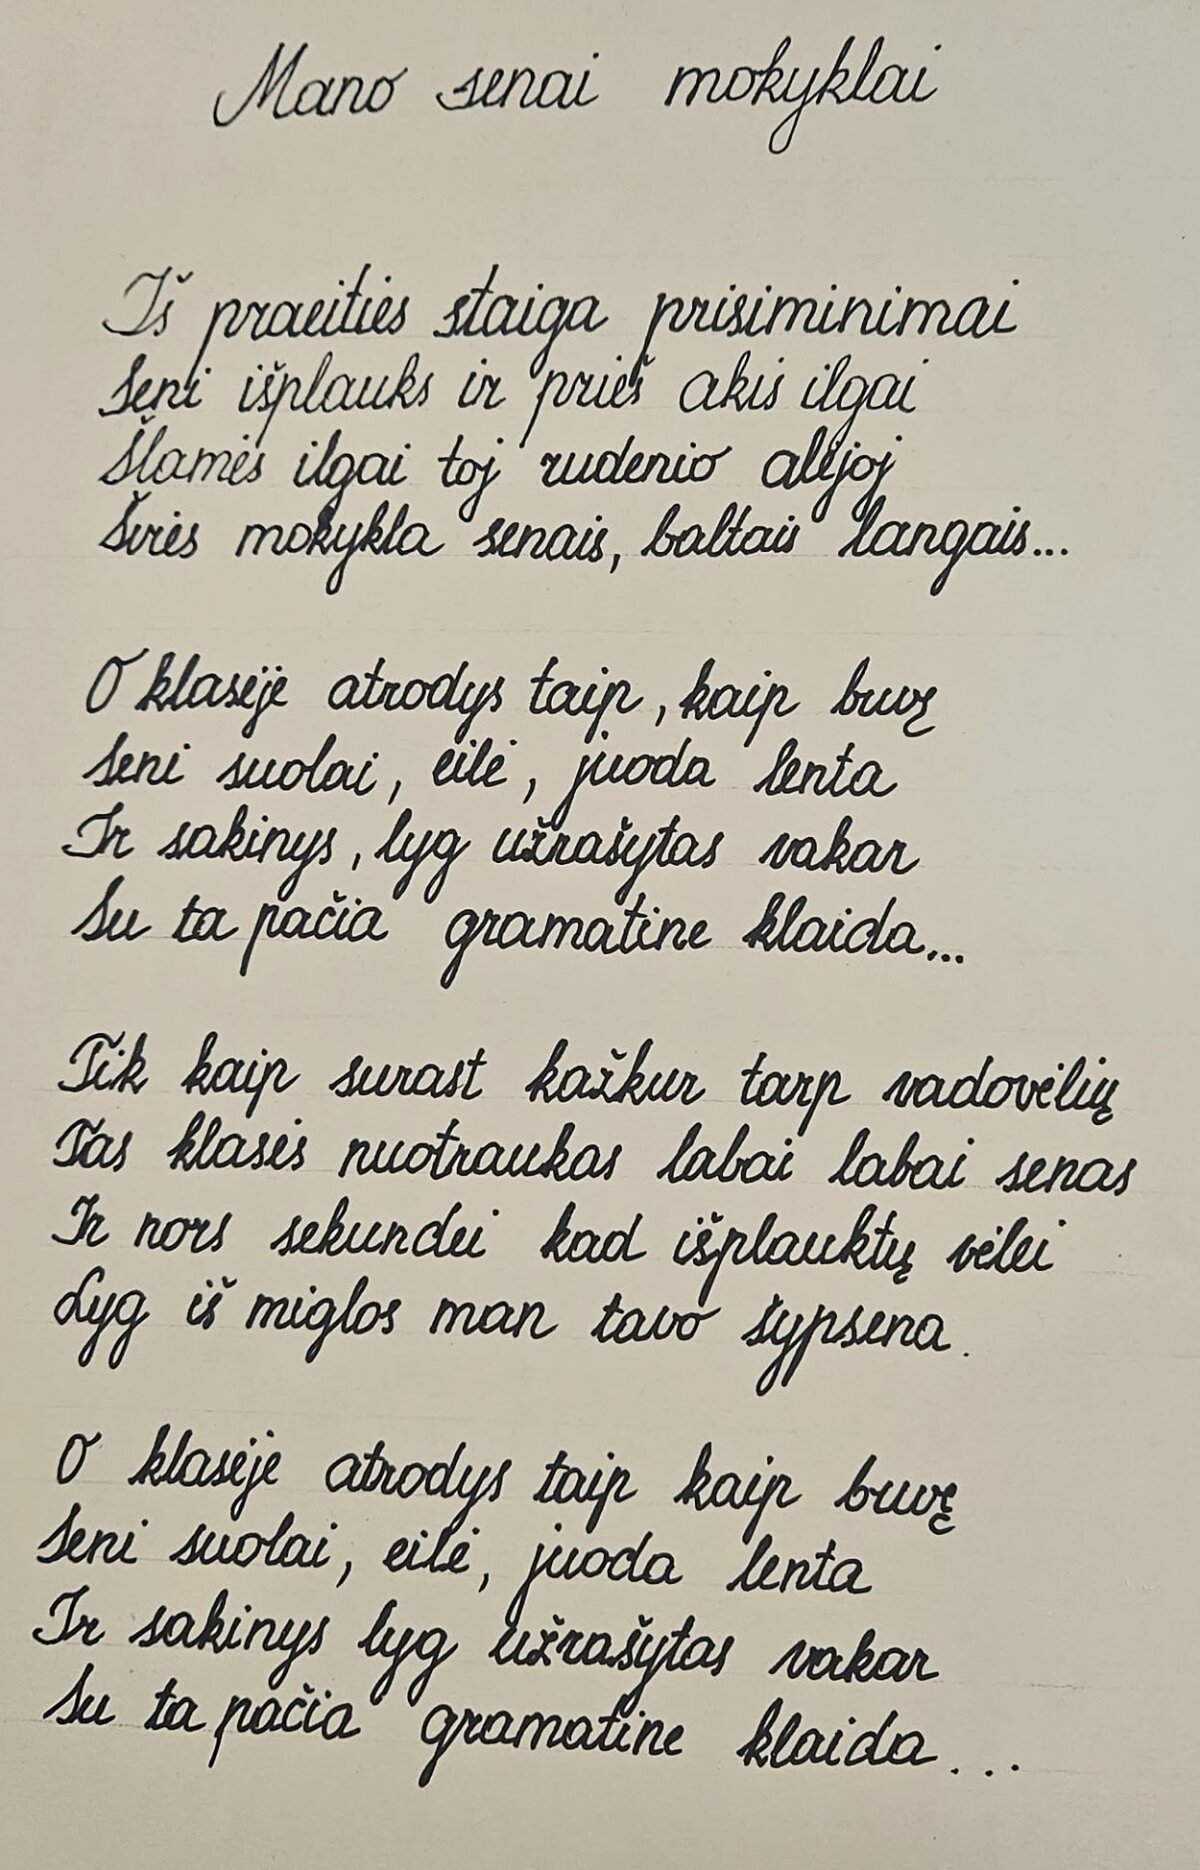 Mano senai mokyklai
Iš praeities staiga prisiminimai
Seni išplauks ir prieš akis ilgai
Šlamės ilgai toj rudenio alėjoj
Švies mokykla senais, baltais langais...
O klasėje atrodys taip, kaip buvę
Seni suolai, eilė, juoda lenta
Ir sakinys, lyg užrašytas vakar
Su ta pačia gramatine klaida...
Tik kaip surast kažkur tarp vadovėlių
Tas klasės nuotraukas labai labai senas
Ir nors sekundei kad išplauktų vėlei
Lyg iš miglos man tavo šypsena.
O klasėje atrodys taip kaip buvę
Seni suolai, eilė, juoda lenta
Ir sakinys lyg užrašytas vakar
Su ta pačia gramatine klaida...